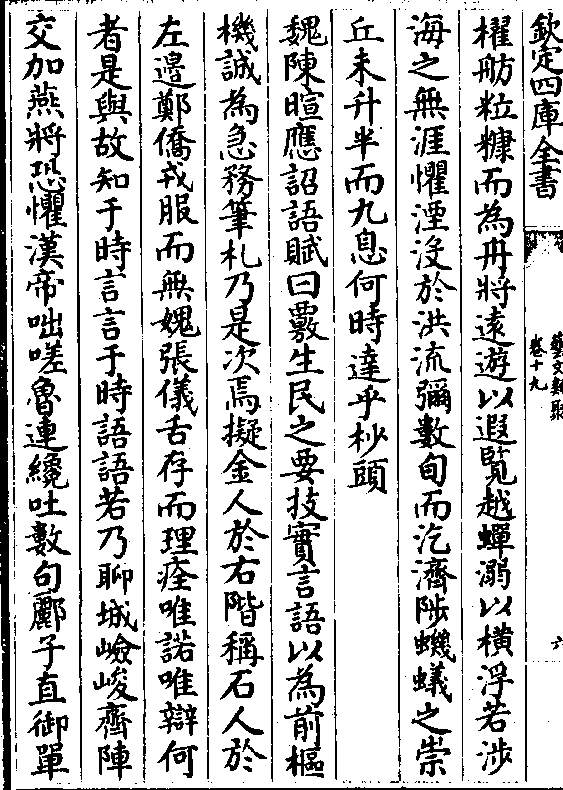 欽定四庫全書
藝文類聚
卷十九
六
櫂舫粒糠而為舟將遠遊以遐覽越蟬溺以橫浮若涉
海之無涯懼湮沒於洪流彌數旬而汔濟陟蟣蟻之崇
丘未升半而九息何時達乎杪頭
魏陳暄應詔語賦曰覈生民之要技實言語以為前樞
機誠為急務筆札乃是次焉擬金人於右階稱石人於
左邊鄭僑戎服而無媿張儀舌存而理痊唯諾唯辯何
者是與故知于時言言于時語語若乃聊城嶮峻齊陣
交加燕將恐懼漢帝咄嗟魯連纔吐數句酈子直御單